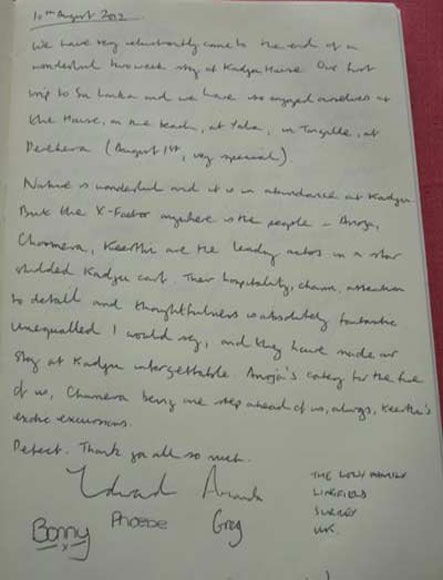 10th August 2012
We have very reluctantly come to the end of a
wonderful two week stay at Kadju House. Our first
trip to Sri Lanka and we have so enjoyed ourselves at
the House, on the beach, at Yala, in Tangalle, at
(August 1st, very special).
Nature is wonderful and it is in abundance at Kadju
But the X-Factor anywhere is the people - Anoja,
Chamera, Keerthi are the leading actors in a star
studded Kadju cast. Their hospitality, charm, attention
to detail and thoughtfulness is absolutely fantastic
unequalled I would say, and they have made our
stay at Kadju unforgettable. Anoja's catery for the five
of us, Chamera being one step ahead of us, always, Keerthi's
exotic excursions.
Perfect. Thank you all so much.
Edward Amanda
Bonny x Phoebe Greg
THE FAMILY
LINGFIELD
SURREY
UK.